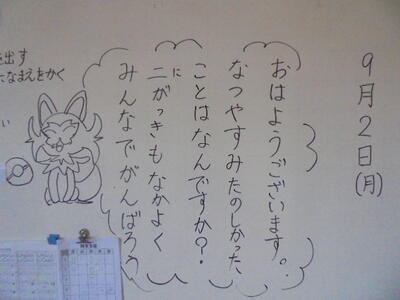 9月2日(月)
おはようございます。
なつやすみたのしかった
ことはなんですか?
二がっきもなかよく
に
みんなでがんばろう
を出す
なまえをかく